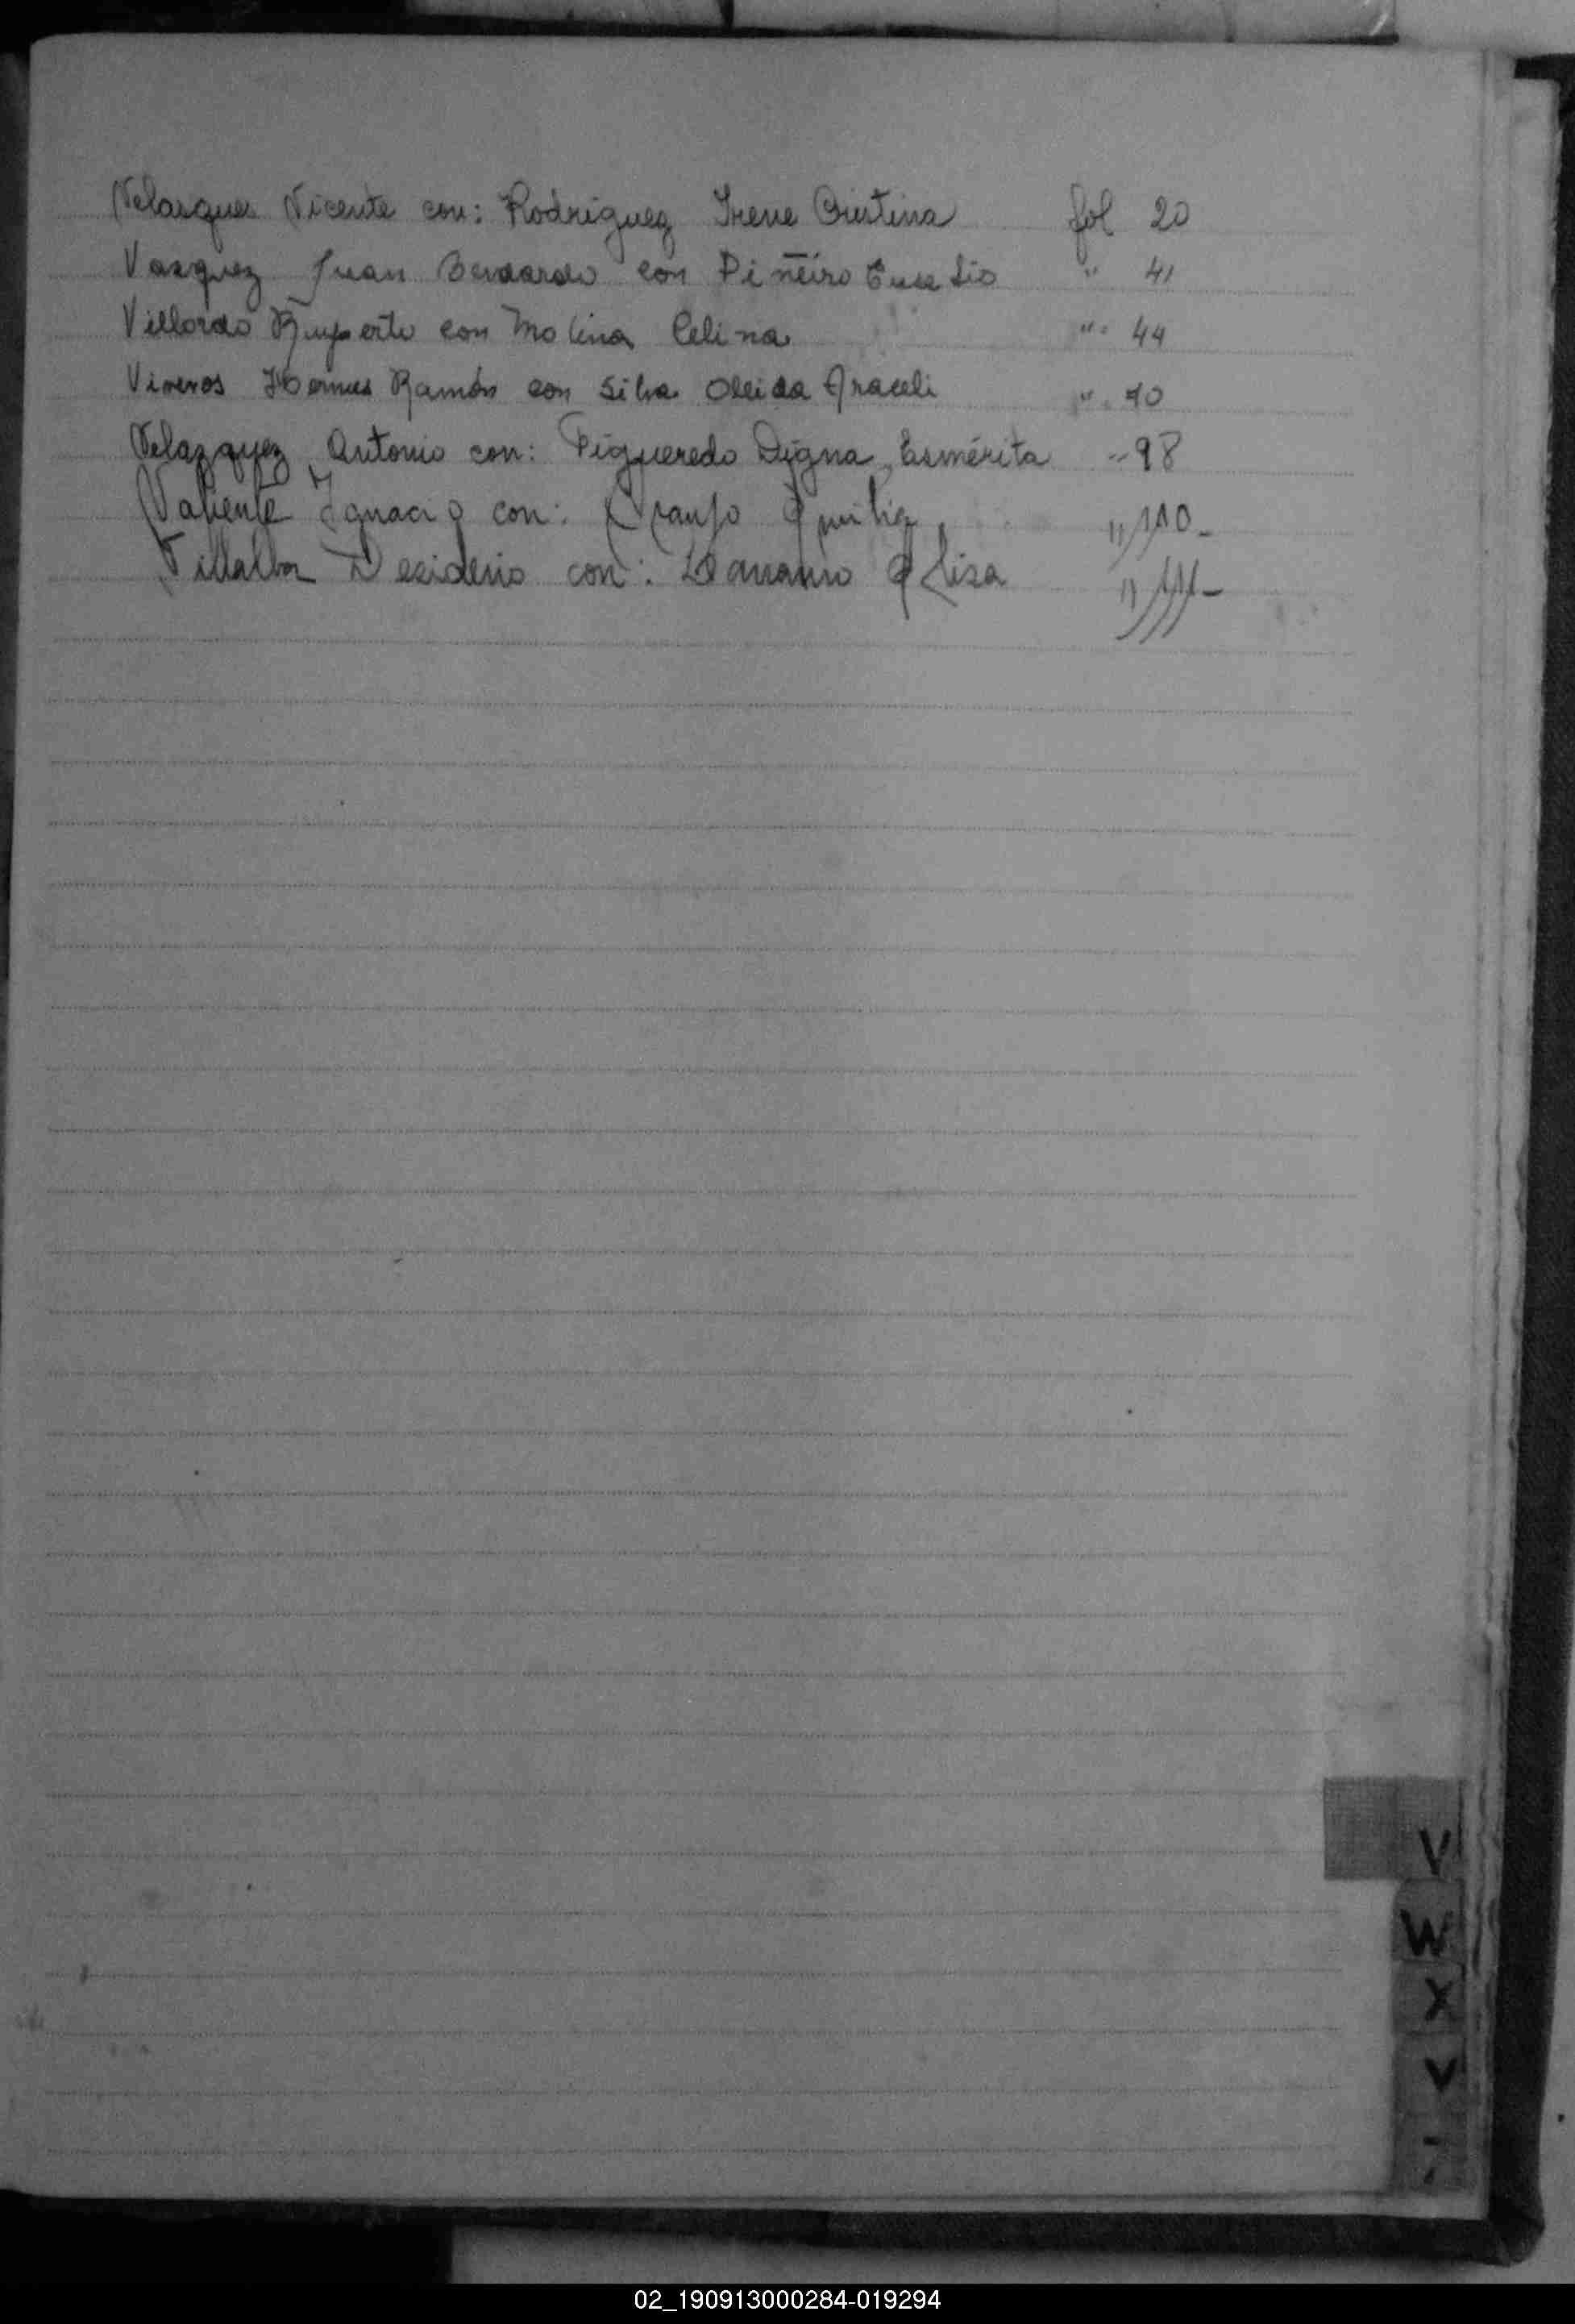 Velasques Vicente con: Rodriguez Irene Cristina fol 20
Vazquez Juan Bernardo con Piñeiro Eusebio " 41
Villordo Ruperto con Molina Celina " 44
Viveros Ramón con Silva Araceli "
Velazquez Antonio con: Figueredo Digna Esmérita " 98
Valiente Ignacio con: Araujo " 110-
Villalba Desiderio con: " 111-
V
W
X
02_190913000284-019294